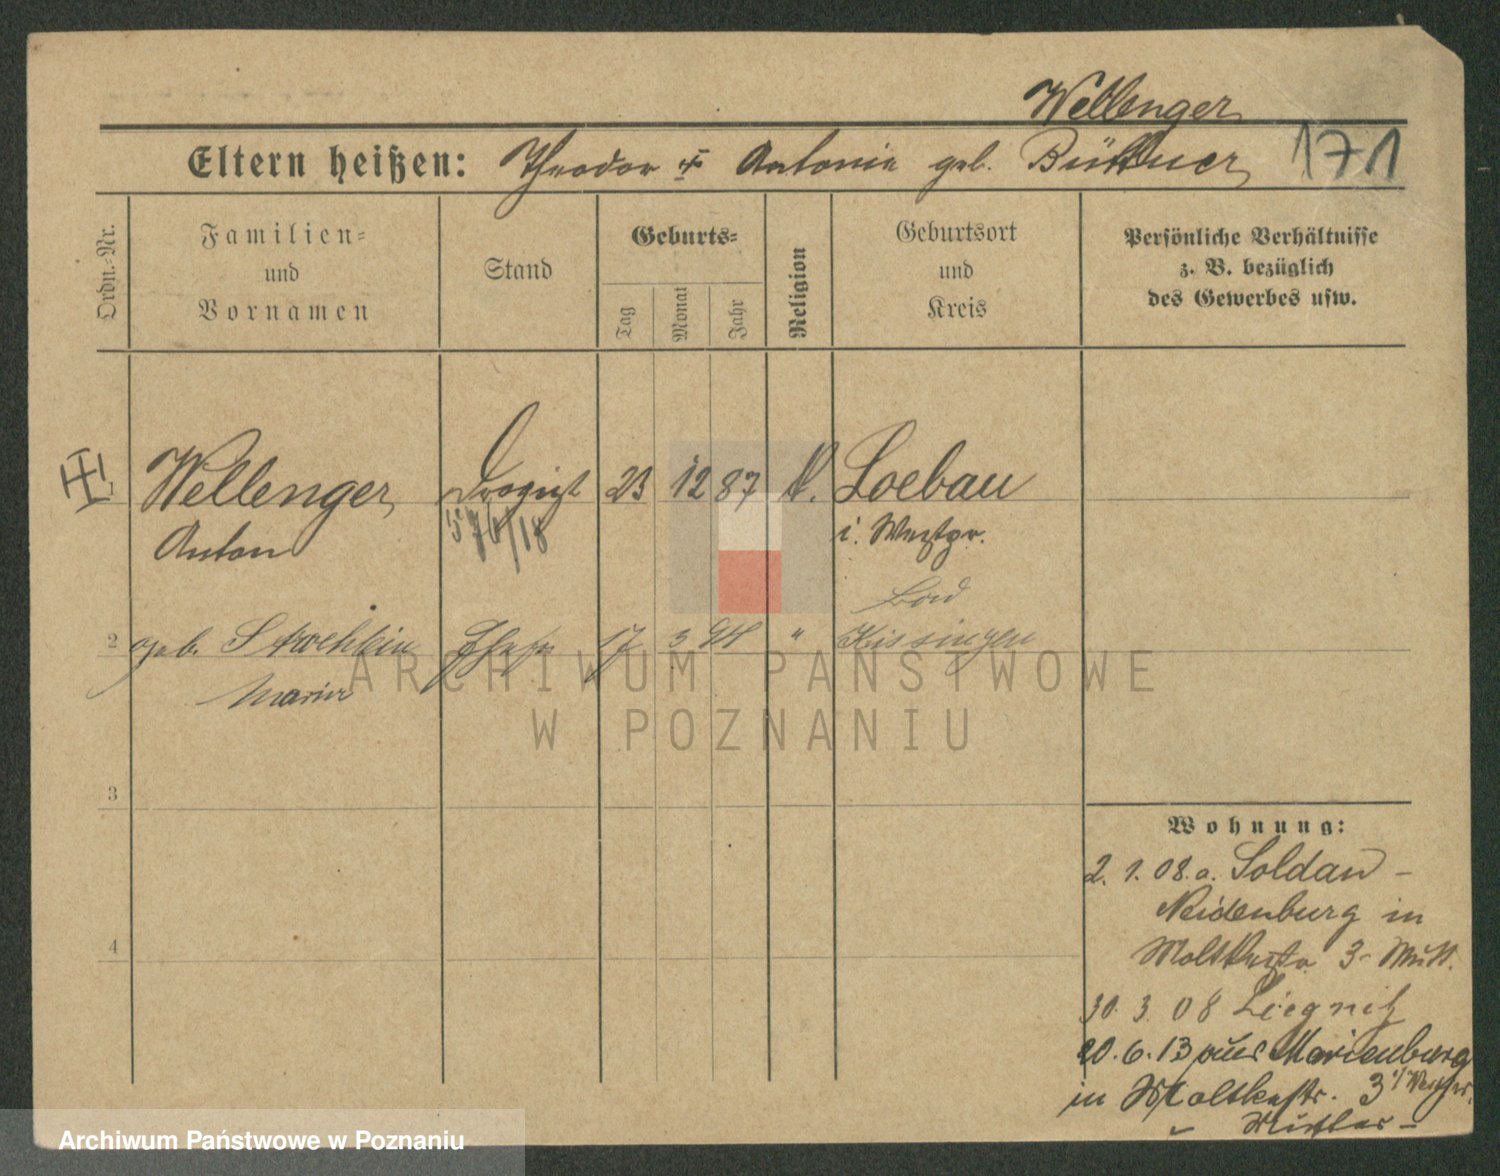 Wellenger
Eltern heißen: Theodor u. Antonie geb. Büttner 171
Ordn.-Nr.
Familien-
und
Vornamen
Stand
Geburts-
Tag
Monat
Jahr
Religion
Geburtsort
und
Kreis
Persönliche Verhältnisse
z. B. bezüglich
des Gewerbes usw.
Wellenger Drogist 23 12 87 k. Loebau
Anton i. Westpr.
Bad
2 geb. Marie 17 3 " Kissingen
ARCHIWUM PAŃSTWOWE
W POZNANIU
3
4
Wohnung:
2. 1. 08. a. Soldau -
Neidenburg in
Moltkestr. 3 - Mutt.
30. 3. 08 Liegnitz
20. 6. 13 aus Marienburg
in Moltkestr. 3
Mutter -
Archiwum Państwowe w Poznaniu